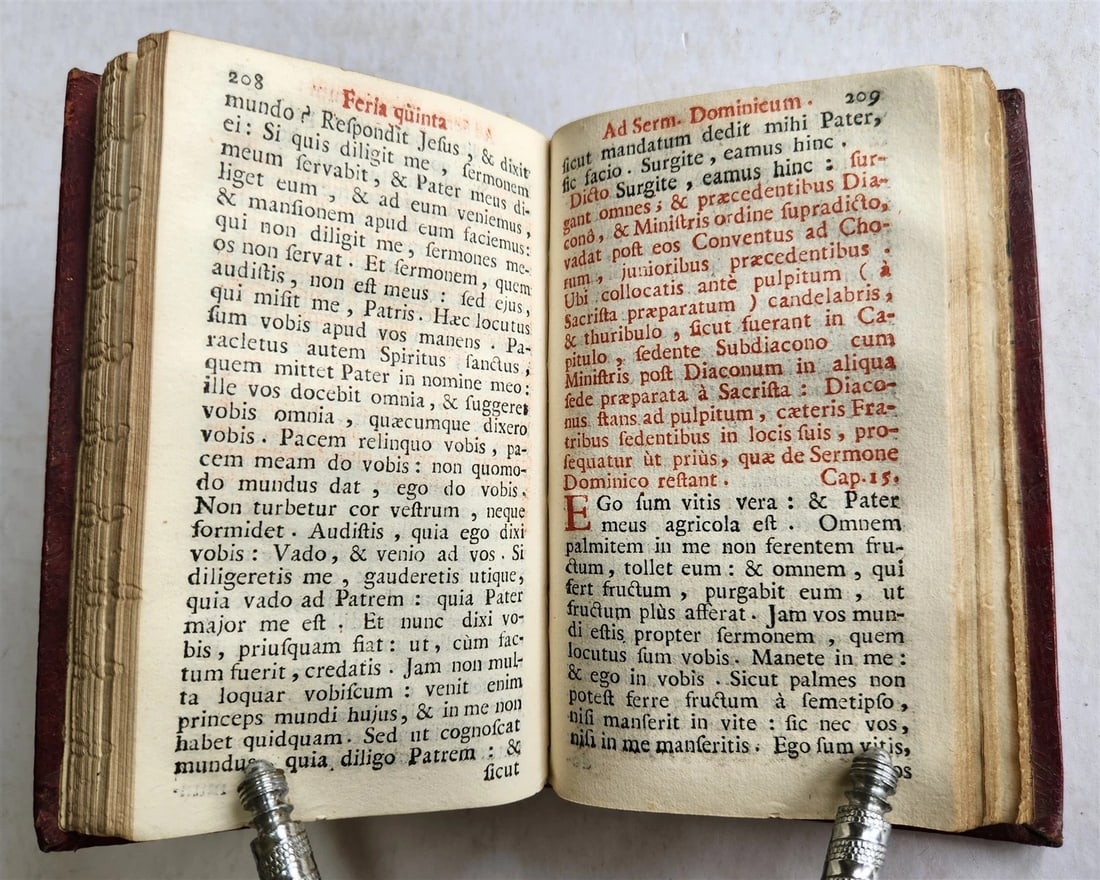 208
Feria quinta
mundo? Reſpondit Jeſus, & dixit
ei: Si quis diligit me, ſermonem
meum ſervabit, & Pater meus di-
liget eum, & ad eum veniemus,
& manſionem apud eum faciemus:
qui non diligit me, ſermones me-
os non ſervat. Et ſermonem, quem
audiſtis, non eſt meus: ſed ejus,
qui miſit me, Patris. Hæc locutus
ſum vobis apud vos manens. Pa-
racletus autem Spiritus ſanctus,
quem mittet Pater in nomine meo:
ille vos docebit omnia, & ſuggeret
vobis omnia, quæcumque dixero
vobis. Pacem relinquo vobis, pa-
cem meam do vobis: non quomo-
do mundus dat, ego do vobis.
Non turbetur cor veſtrum, neque
formidet. Audiſtis, quia ego dixi
vobis: Vado, & venio ad vos. Si
diligeretis me, gauderetis utique,
quia vado ad Patrem: quia Pater
major me eſt. Et nunc dixi vo-
bis, priuſquam fiat: ut, cùm fac-
tum fuerit, credatis. Jam non mul-
ta loquar vobiſcum: venit enim
princeps mundi hujus, & in me non
habet quidquam. Sed ut cognoſcat
mundus, quia diligo Patrem: &
ſicut
Ad Serm. Dominicum. 209
ſicut mandatum dedit mihi Pater,
ſic facio. Surgite, eamus hinc.
Dicto Surgite, eamus hinc: ſur-
gant omnes; & præcedentibus Dia-
conô, & Miniſtris ordine ſupradicto,
vadat poſt eos Conventus ad Cho-
rum, junioribus præcedentibus.
Ubi collocatis antè pulpitum (à
Sacriſta præparatum) candelabris,
& thuribulo, ſicut fuerant in Ca-
pitulo, ſedente Subdiacono cum
Miniſtris poſt Diaconum in aliqua
ſede præparata à Sacriſta: Diaco-
nus ſtans ad pulpitum, cæteris Fra-
tribus ſedentibus in locis ſuis, pro-
ſequatur ùt priùs, quæ de Sermone
Dominico reſtant. Cap. 15.
EGo ſum vitis vera: & Pater
meus agricola eſt. Omnem
palmitem in me non ferentem fru-
ctum, tollet eum: & omnem, qui
fert fructum, purgabit eum, ut
fructum plùs afferat. Jam vos mun-
di eſtis propter ſermonem, quem
locutus ſum vobis. Manete in me:
& ego in vobis. Sicut palmes non
poteſt ferre fructum à ſemetipſo,
niſi manſerit in vite: ſic nec vos,
niſi in me manſeritis. Ego ſum vitis,